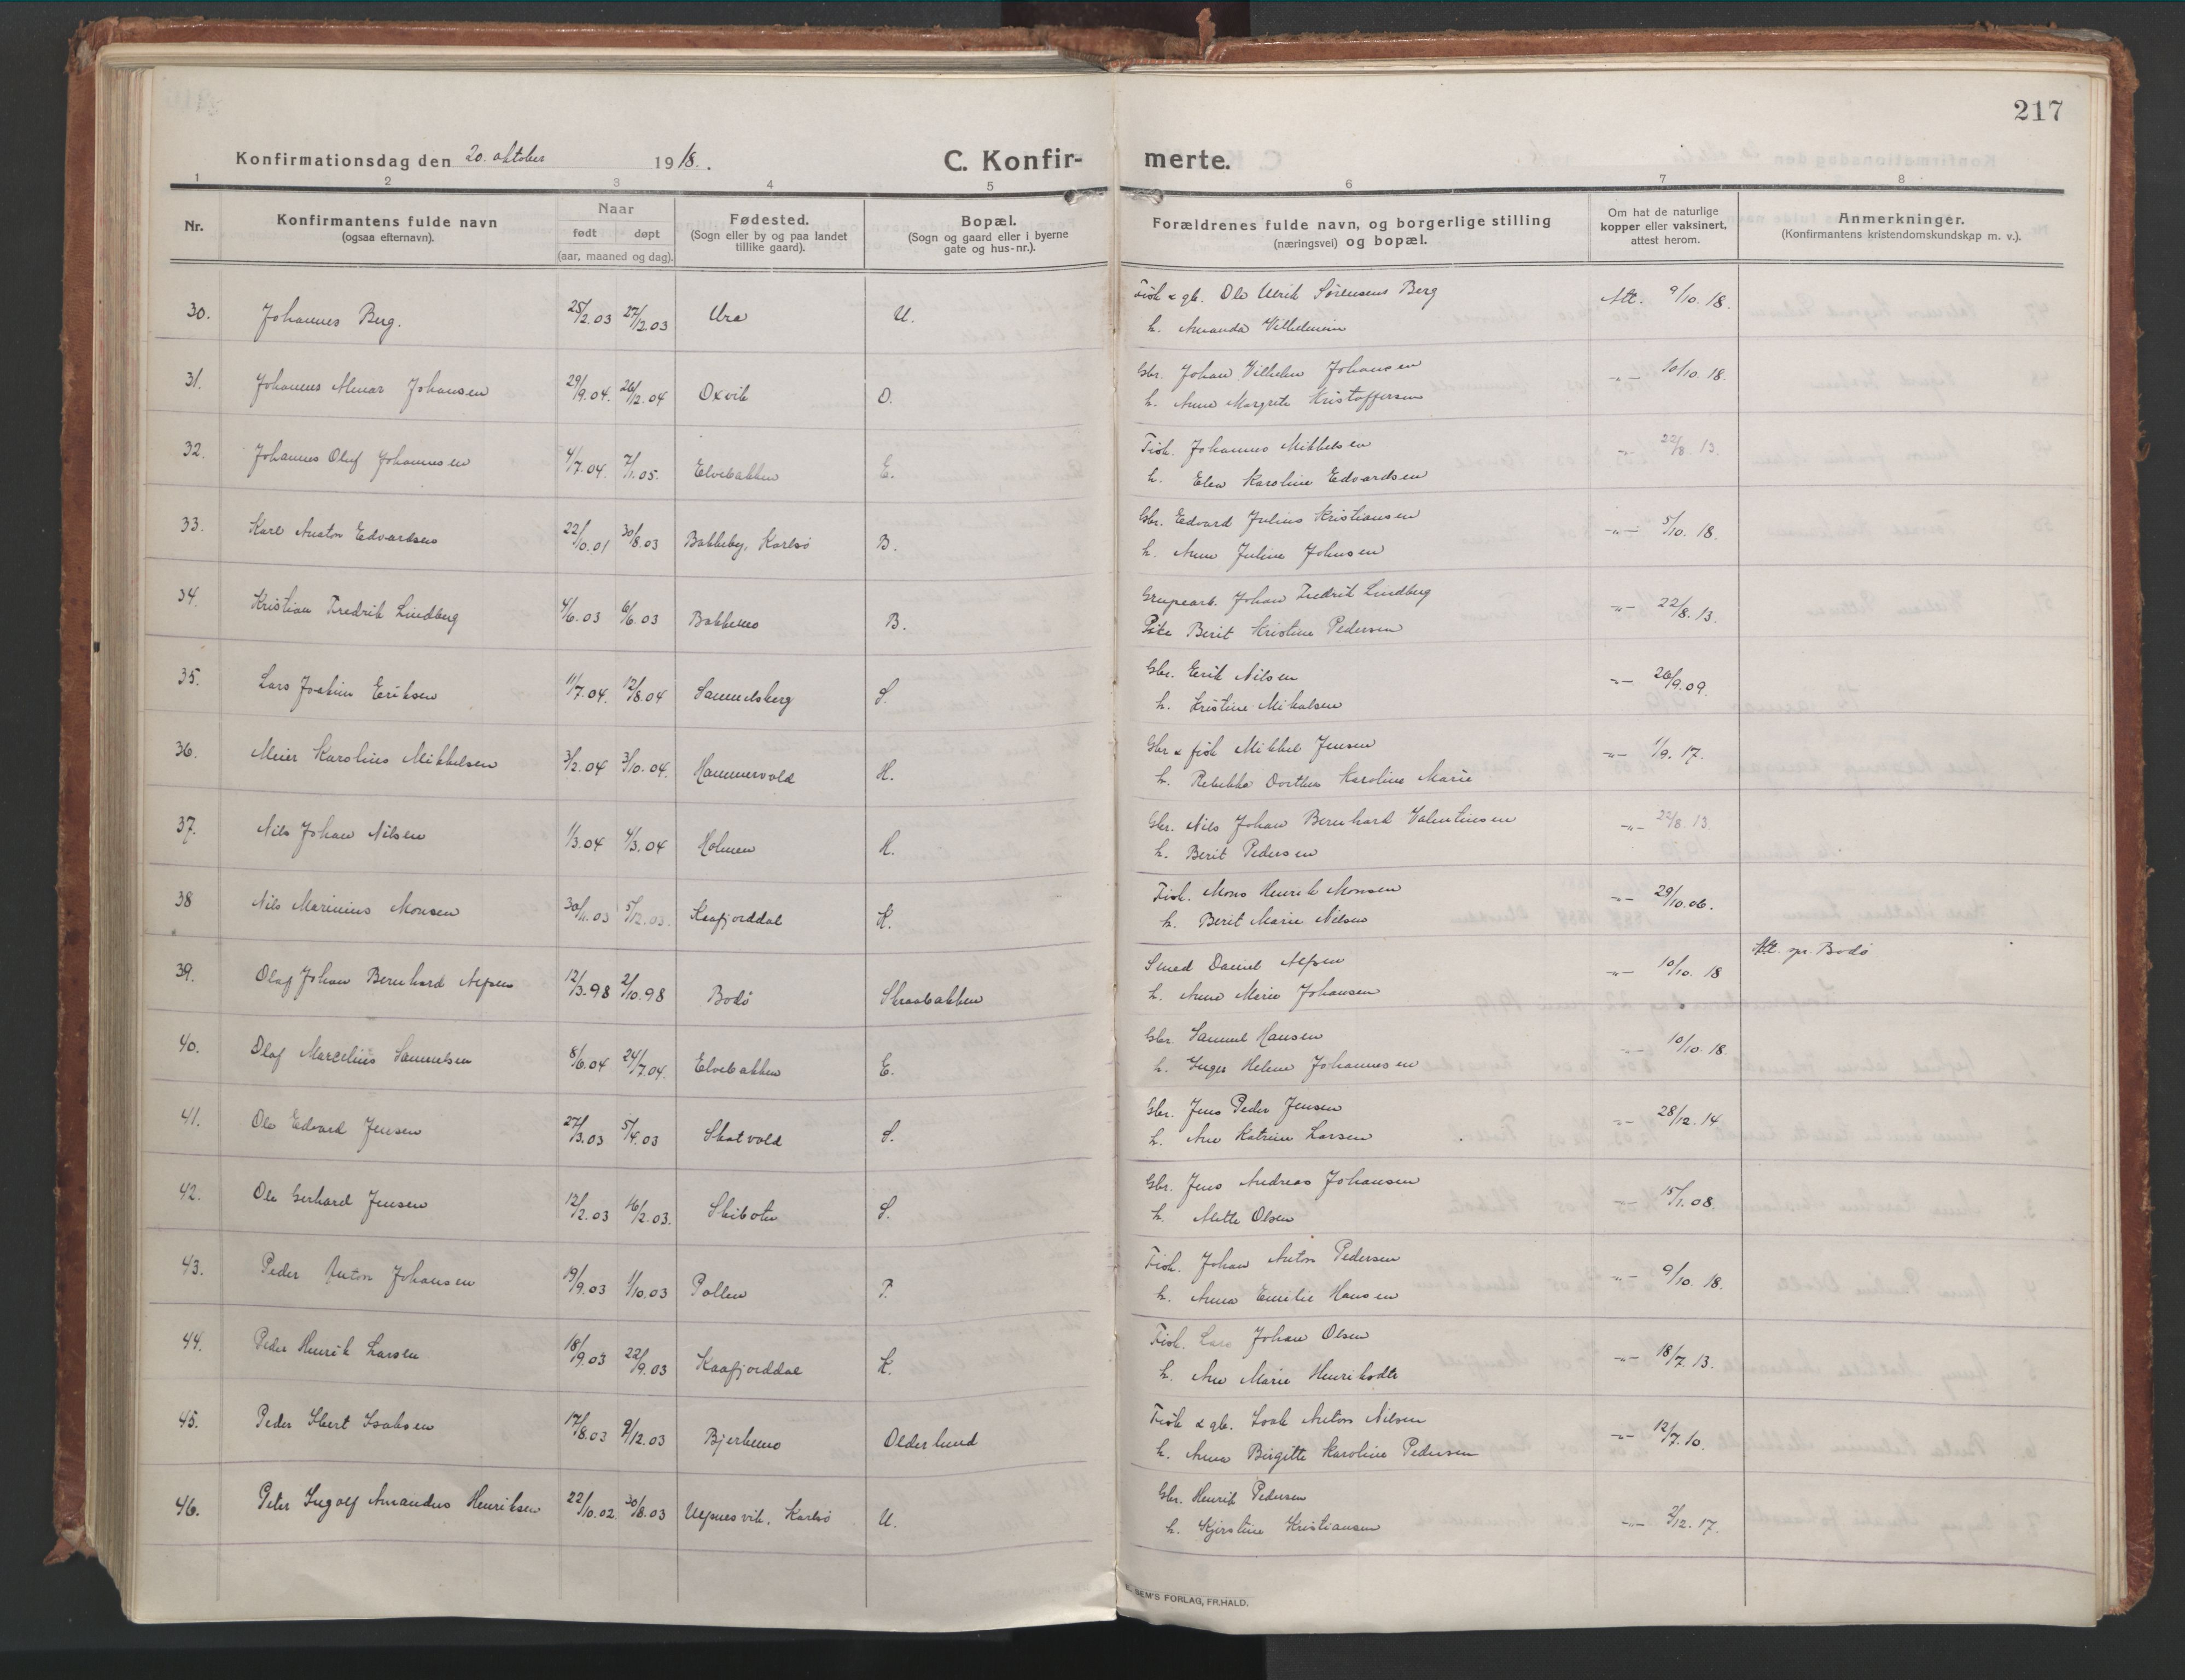 217
Konfirmationsdag den 20. oktober 1918. C. Konfirmerte.
1 2 3 4 5 6 7 8
Nr. Konfirmantens fulde navn (ogsaa efternavn). Naar født døpt (aar, maaned og dag). Fødested. (Sogn eller by og paa landet tillike gaard). Bopæl. (Sogn og gaard eller i byerne gate og hus-nr.). Forældrenes fulde navn, og borgerlige stilling (næringsvei) og bopæl. Om hat de naturlige kopper eller vaksinert, attest herom. Anmerkninger. (Konfirmantens kristendomskundskap m. v.).
30. Johannes Berg. 25/2.03 27/12.03 Ura U. Fisk & gb. Ole Ulrik Sørensens Berg Att. 9/10. 18.
h. Amanda Vilhelmin
31. Johannes Almar Johansen 29/9.04. 26/12.04 Oxvik O. Gbr. Johan Vilhelm Johansen -"- 10/10. 18.
h. Anne Margrete Kristoffersen
32. Johannes Oluf Johannesen 4/7.04. 7/1.05. Elvebakken E. Fisk. Johannes Mikkelsen -"- 22/8. 13.
h. Elea Karoline Edvardsen
33. Karl Anston Edvardsen 22/10.01 30/8.03 Bakkeby, Karlsø B. Gbr. Edvard Julius Kristiansen -"- 5/10. 18.
h. Anne Juline Johnsen
34. Kristian Fredrik Lindberg 4/6.03 6/6.03 Bakkemo B. Grupearb. Johan Fredrik Lindberg -"- 22/8. 13.
Pike Berit Kristine Pedersen
35. Lars Joakim Eriksen 11/7.04. 12/8.04 Samuelsberg S. Gbr. Erik Nilsen -"- 26/9.09.
h. Kristine Mikalsen
36. Meier Karolius Mikkelsen 3/2.04 3/10.04. Hammervold H. Gbr & fisk Mikkel Jensen -"- 1/9. 17.
h. Rebekka Dorthea Karoline Marie
37. Nils Johan Nilsen 1/3.04 4/3.04 Holmen H. Gbr. Nils Johan Bernhard Valentinsen -"- 22/8. 13.
h. Berit Pedersen
38 Nils Marinius Monsen 30/11.03 5/12.03. Kaafjorddal K. Fisk. Mons Henrik Monsen -"- 29/10.06.
h. Berit Marie Nilsen
39. Olaf Johan Bernhard Alfsen 12/3.98 2/10.98 Bodø Skraabakken Smed Daniel Alfsen -"- 10/10. 18 Att. spr. Bodø
h. Anne Marie Johansen
40. Olaf Marcelius Samuelsen 8/6.04 24/7.04. Elvebakken E. Gbr. Samuel Hansen -"- 10/10. 18.
h. Inger Helene Johannesen
41. Ole Edvard Jensen 27/3.03 5/4.03 Skatvold S. Gbr. Jens Peder Jensen -"- 28/12. 14
h. Ane Katrine Larsen
42. Ole Gerhard Jensen 12/2.03 16/2.03. Skibotn S. Gbr. Jens Andreas Johansen -"- 15/1.08.
h. Mette Olsen
43. Peder Anton Johansen 19/9.03 1/10.03 Pollen P. Fisk. Johan Anton Pedersen -"- 9/10. 18.
h. Anna Emilie Hansen
44. Peder Henrik Larsen 18/9.03 22/9.03 Kaafjorddal K. Fisk. Lars Johan Olsen -"- 18/7. 13.
h. Ane Marie Henriksdtr
45. Peder Ebert Isaksen 17/8.03 9/12.03 Bjerkemo Olderlund Fisk & gb. Isak Anton Nilsen -"- 12/7.10.
h. Anna Birgitte Karoline Pedersen
46. Peter Ingolf Amandus Henriksen 22/10.02. 30/8.03 Ulfnesvik, Karlsø U. Gbr. Henrik Pedersen -"- 2/12. 17.
h. Kjerstine Kristiansen
SEM'S FORLAG, FR.HALD.